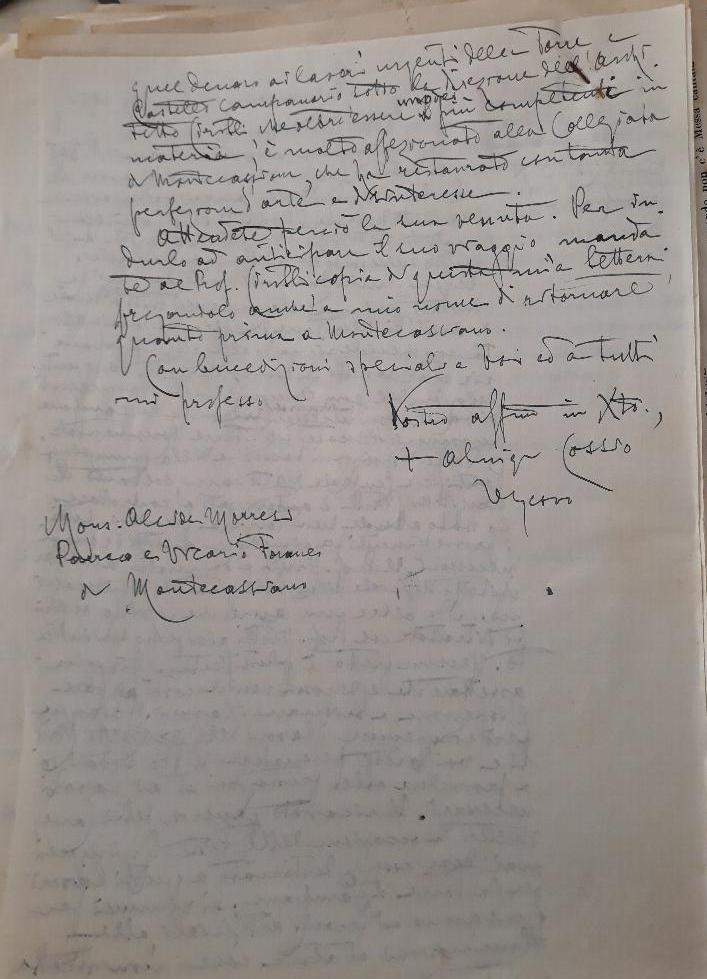 quel denaro ai lavori urgenti della Torre e
Castello Campanario sotto la direzione dell'Archi-
tetto Cirilli che oltre essere uno dei più competenti in
materia, è molto affezionato alla Collegiata
di Montecassiano, che ha restaurato con tanta
perfezione d'arte e disinteresse.
Attendete perciò la sua venuta. Per in-
durlo ad anticipare il suo viaggio manda-
te al Prof. Cirilli copia di questa mia lettera
pregandolo anche a mio nome di ritornare
quanto prima a Montecassiano.
Con benedizioni speciali a Voi ed a tutti
mi professo
Vostro affmo in Xto.,
+ Aluigi Cossio
Vescovo
Mons. Alcide Morresi
Parroco e Vicario Foraneo
di Montecassiano
non c'è Messa cantata